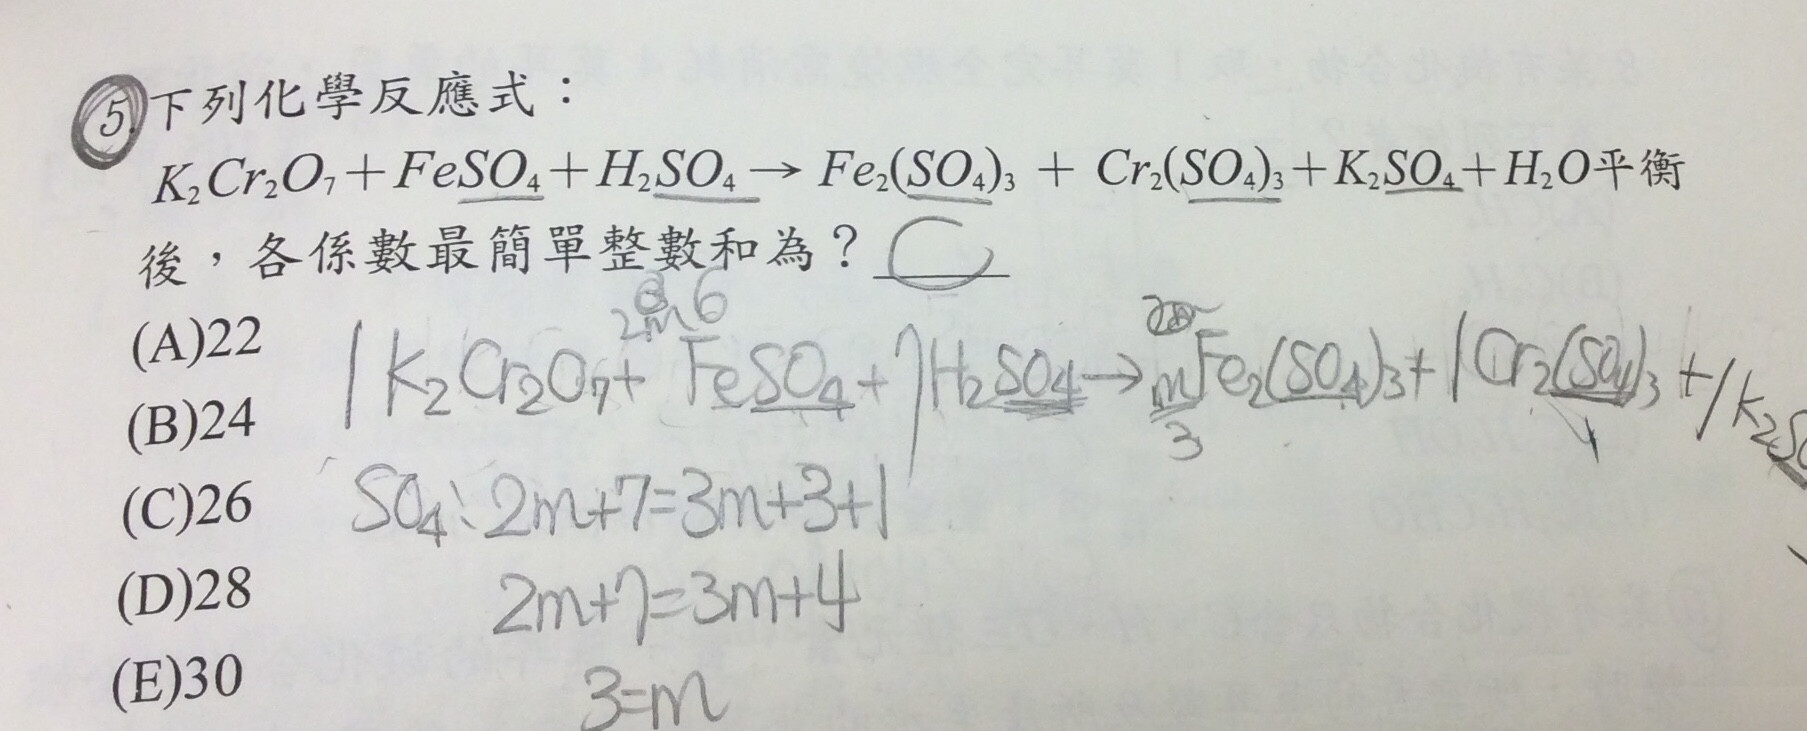 5.下列化學反應式：
K₂Cr₂O₇+FeSO₄+H₂SO₄→Fe₂(SO₄)₃ + Cr₂(SO₄)₃+K₂SO₄+H₂O平衡
後，各係數最簡單整數和為？ C
(A)22
2m 6
1K₂Cr₂O₇+ FeSO₄+7H₂SO₄→mFe₂(SO₄)₃+1Cr₂(SO₄)₃+1K₂SO
3
(B)24
(C)26
SO₄: 2m+7=3m+3+1
(D)28
2m+7=3m+4
(E)30
3=m